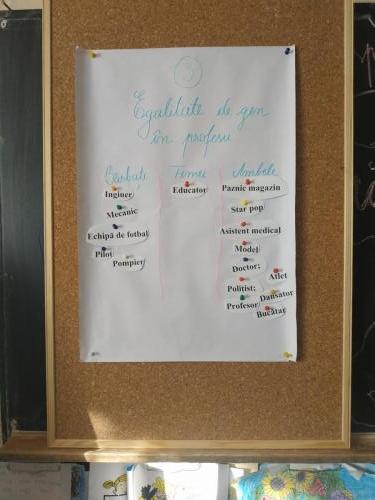 3
Egalitate de gen
în profesii
Bărbați Femei Ambele
Inginer Educator Paznic magazin
Mecanic Star pop
Echipă de fotbal Asistent medical
Pilot Model
Pompier Doctor;
Atlet
Polițist;
Dansator
Profesor
Bucătar